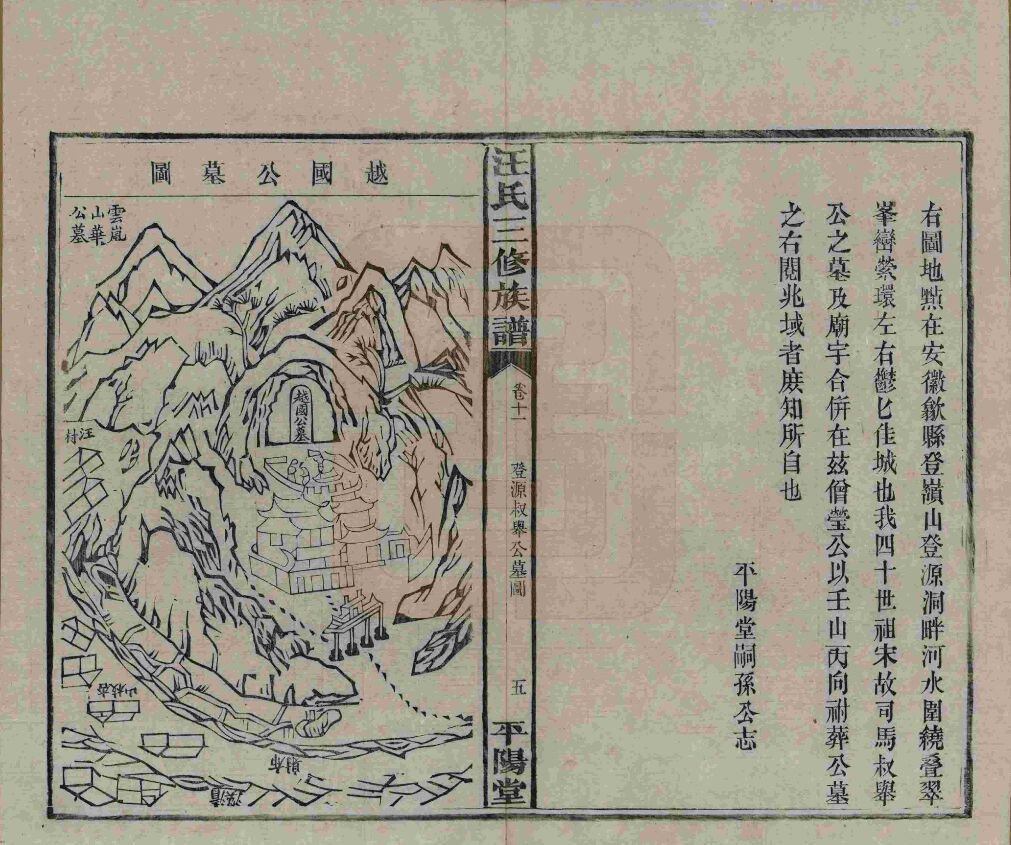 右圖地㸃在安徽歙縣登嶺山登源洞畔河水圍繞叠翠
峯巒縈環左右鬱匕佳城也我四十世祖宋故司馬叔舉
公之墓及廟宇合併在茲僧瑩公以壬山丙向祔葬公墓
之右閱兆域者庻知所自也
平陽堂嗣孫公志
汪氏三修族譜
卷十一
登源叔舉公墓圖
五
平陽堂
越國公墓圖
雲嵐
山華
公墓
越國公墓
汪村
射布